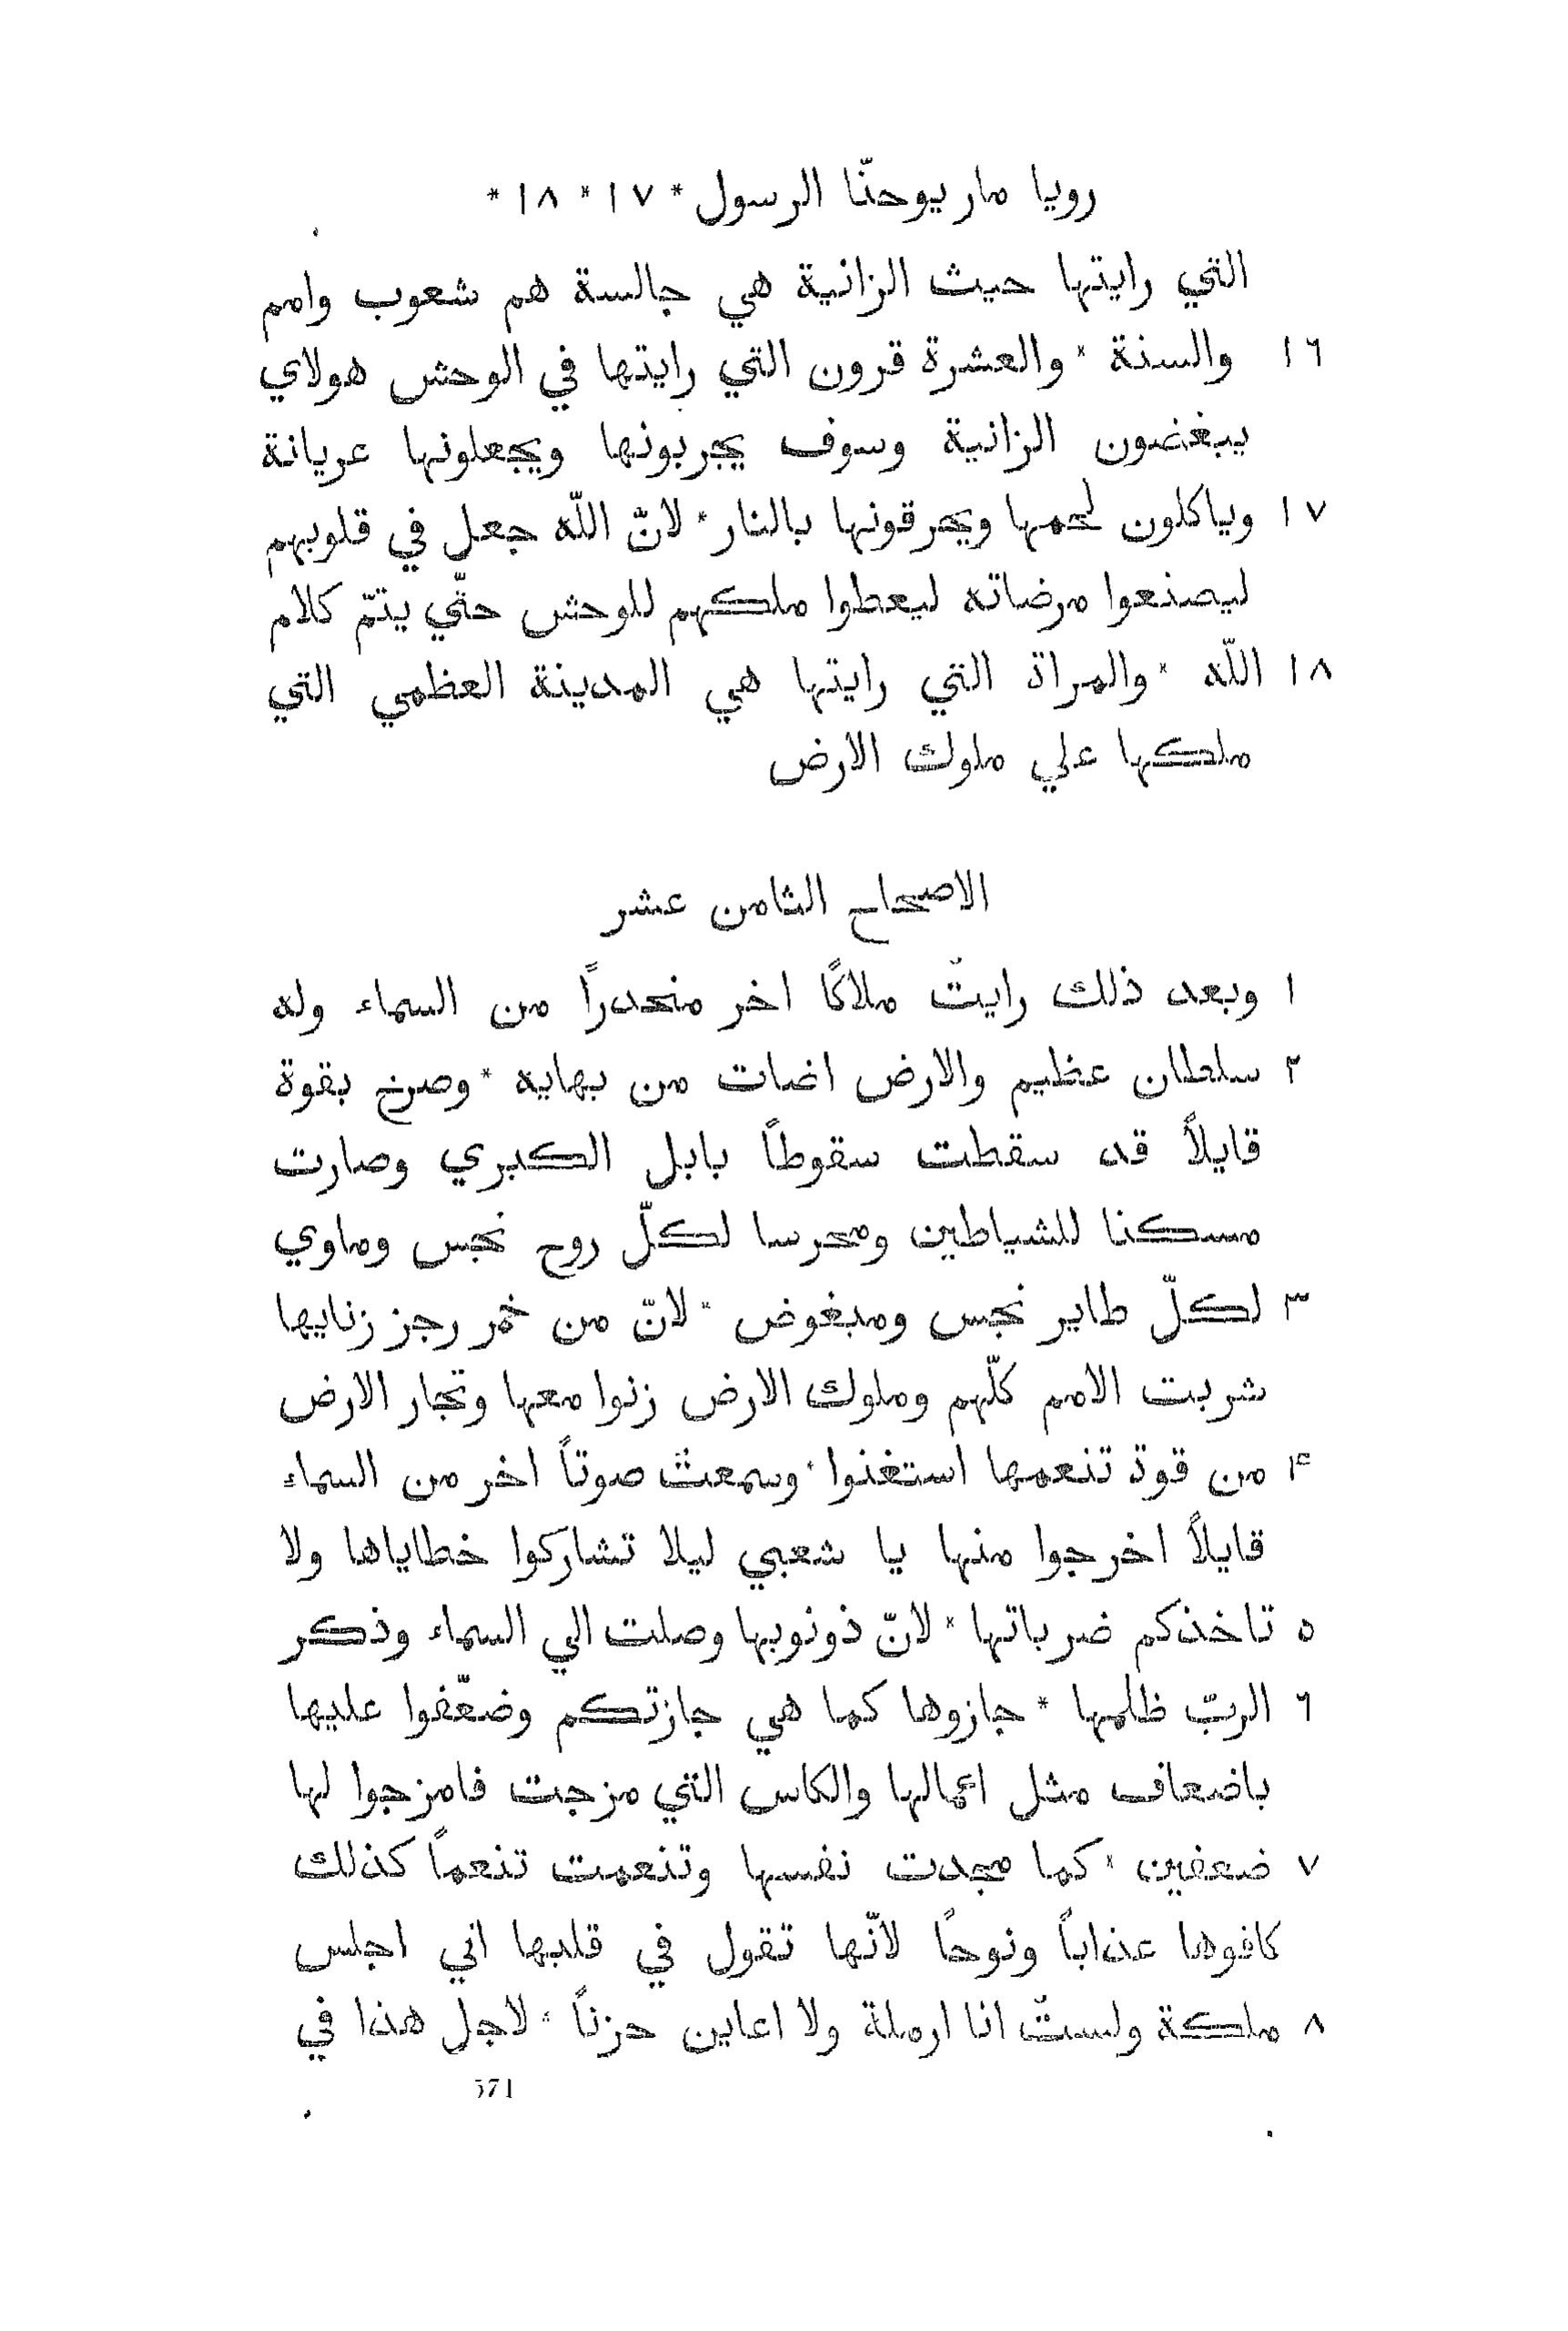 رويا مار يوحنّا الرسول * ١٧ * ١٨ *
التي رايتها حيث الزانية هي جالسة هم شعوب وامم
١٦ والسنة * والعشرة قرون التي رايتها في الوحش هولاي
يبغضون الزانية وسوف يجربونها ويجعلونها عريانة
١٧ وياكلون لحمها ويحرقونها بالنار * لانّ اللّه جعل في قلوبهم
ليصنعوا مرضاته ليعطوا ملكهم للوحش حتّي يتمّ كلام
١٨ اللّه * والمراة التي رايتها هي المدينة العظمي التي
ملكها علي ملوك الارض
الاصحاح الثامن عشر
١ وبعد ذلك رايتُ ملاكًا اخر منحدرًا من السماء وله
٢ سلطان عظيم والارض اضات من بهايه * وصرخ بقوة
قايلاً قد سقطت سقوطاً بابل الكبري وصارت
مسكنا للشياطين ومحرسا لكلّ روح نجس وماوي
٣ لكلّ طاير نجس ومبغوض * لانّ من خمر رجز زنايها
شربت الامم كلّهم وملوك الارض زنوا معها وتجار الارض
۴ من قوة تنعمها استغنوا * وسمعتُ صوتاً اخر من السماء
قايلاً اخرجوا منها يا شعبي ليلا تشاركوا خطاياها ولا
٥ تاخذكم ضرباتها * لانّ ذونوبها وصلت الي السماء وذكر
٦ الربّ ظلمها * جازوها كما هي جازتكم وضعّفوا عليها
باضعاف مثل اعمالها والكاس التي مزجت فامزجوا لها
٧ ضعفين * كما مجدت نفسها وتنعمت تنعماً كذلك
كافوها عذاباً ونوحاً لانّها تقول في قلبها اني اجلس
٨ ملكة ولستُ انا ارملة ولا اعاين حزناً * لاجل هذا في
571